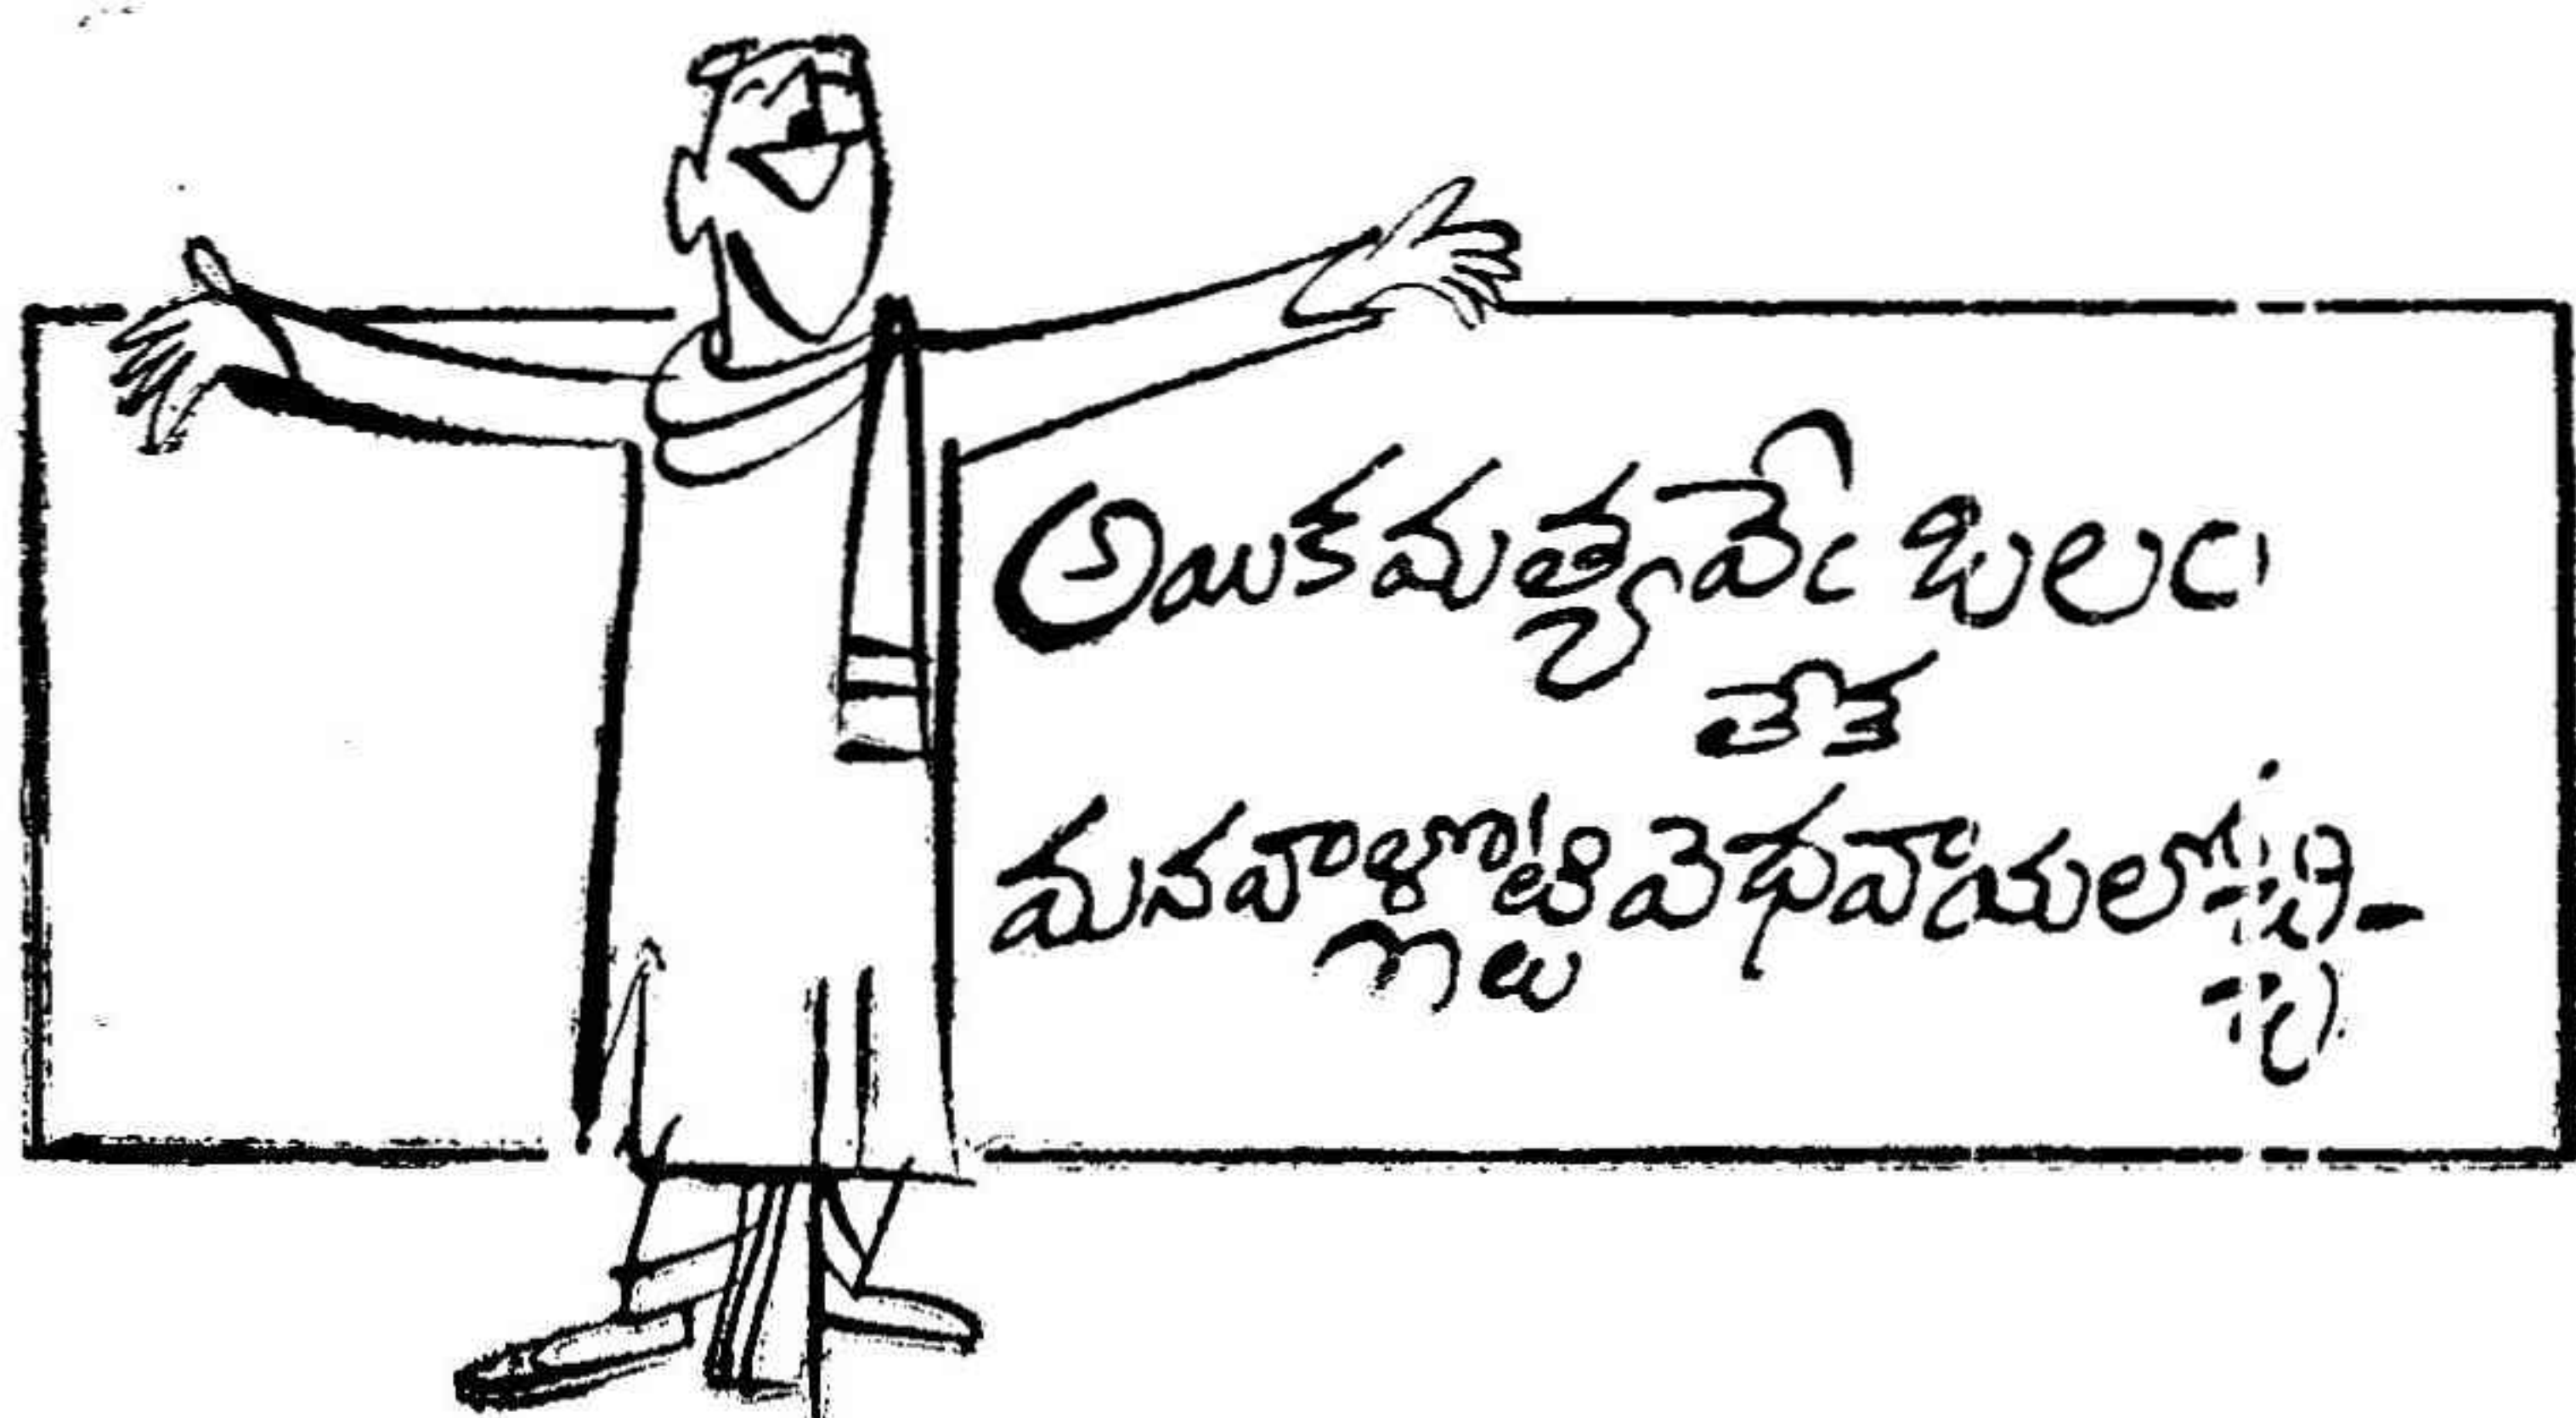 అయికమత్యమే బలం
లేక
మనవాళ్ళొట్టి వెధవాయలోస్స్